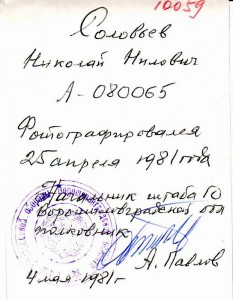 10059
Соловьев
Николай Нилович
А-080065
Фотографировался
25 апреля 1981 года
Начальник штаба ГО
Ворошиловградской обл
полковник
А. Павлов
4 мая 1981г